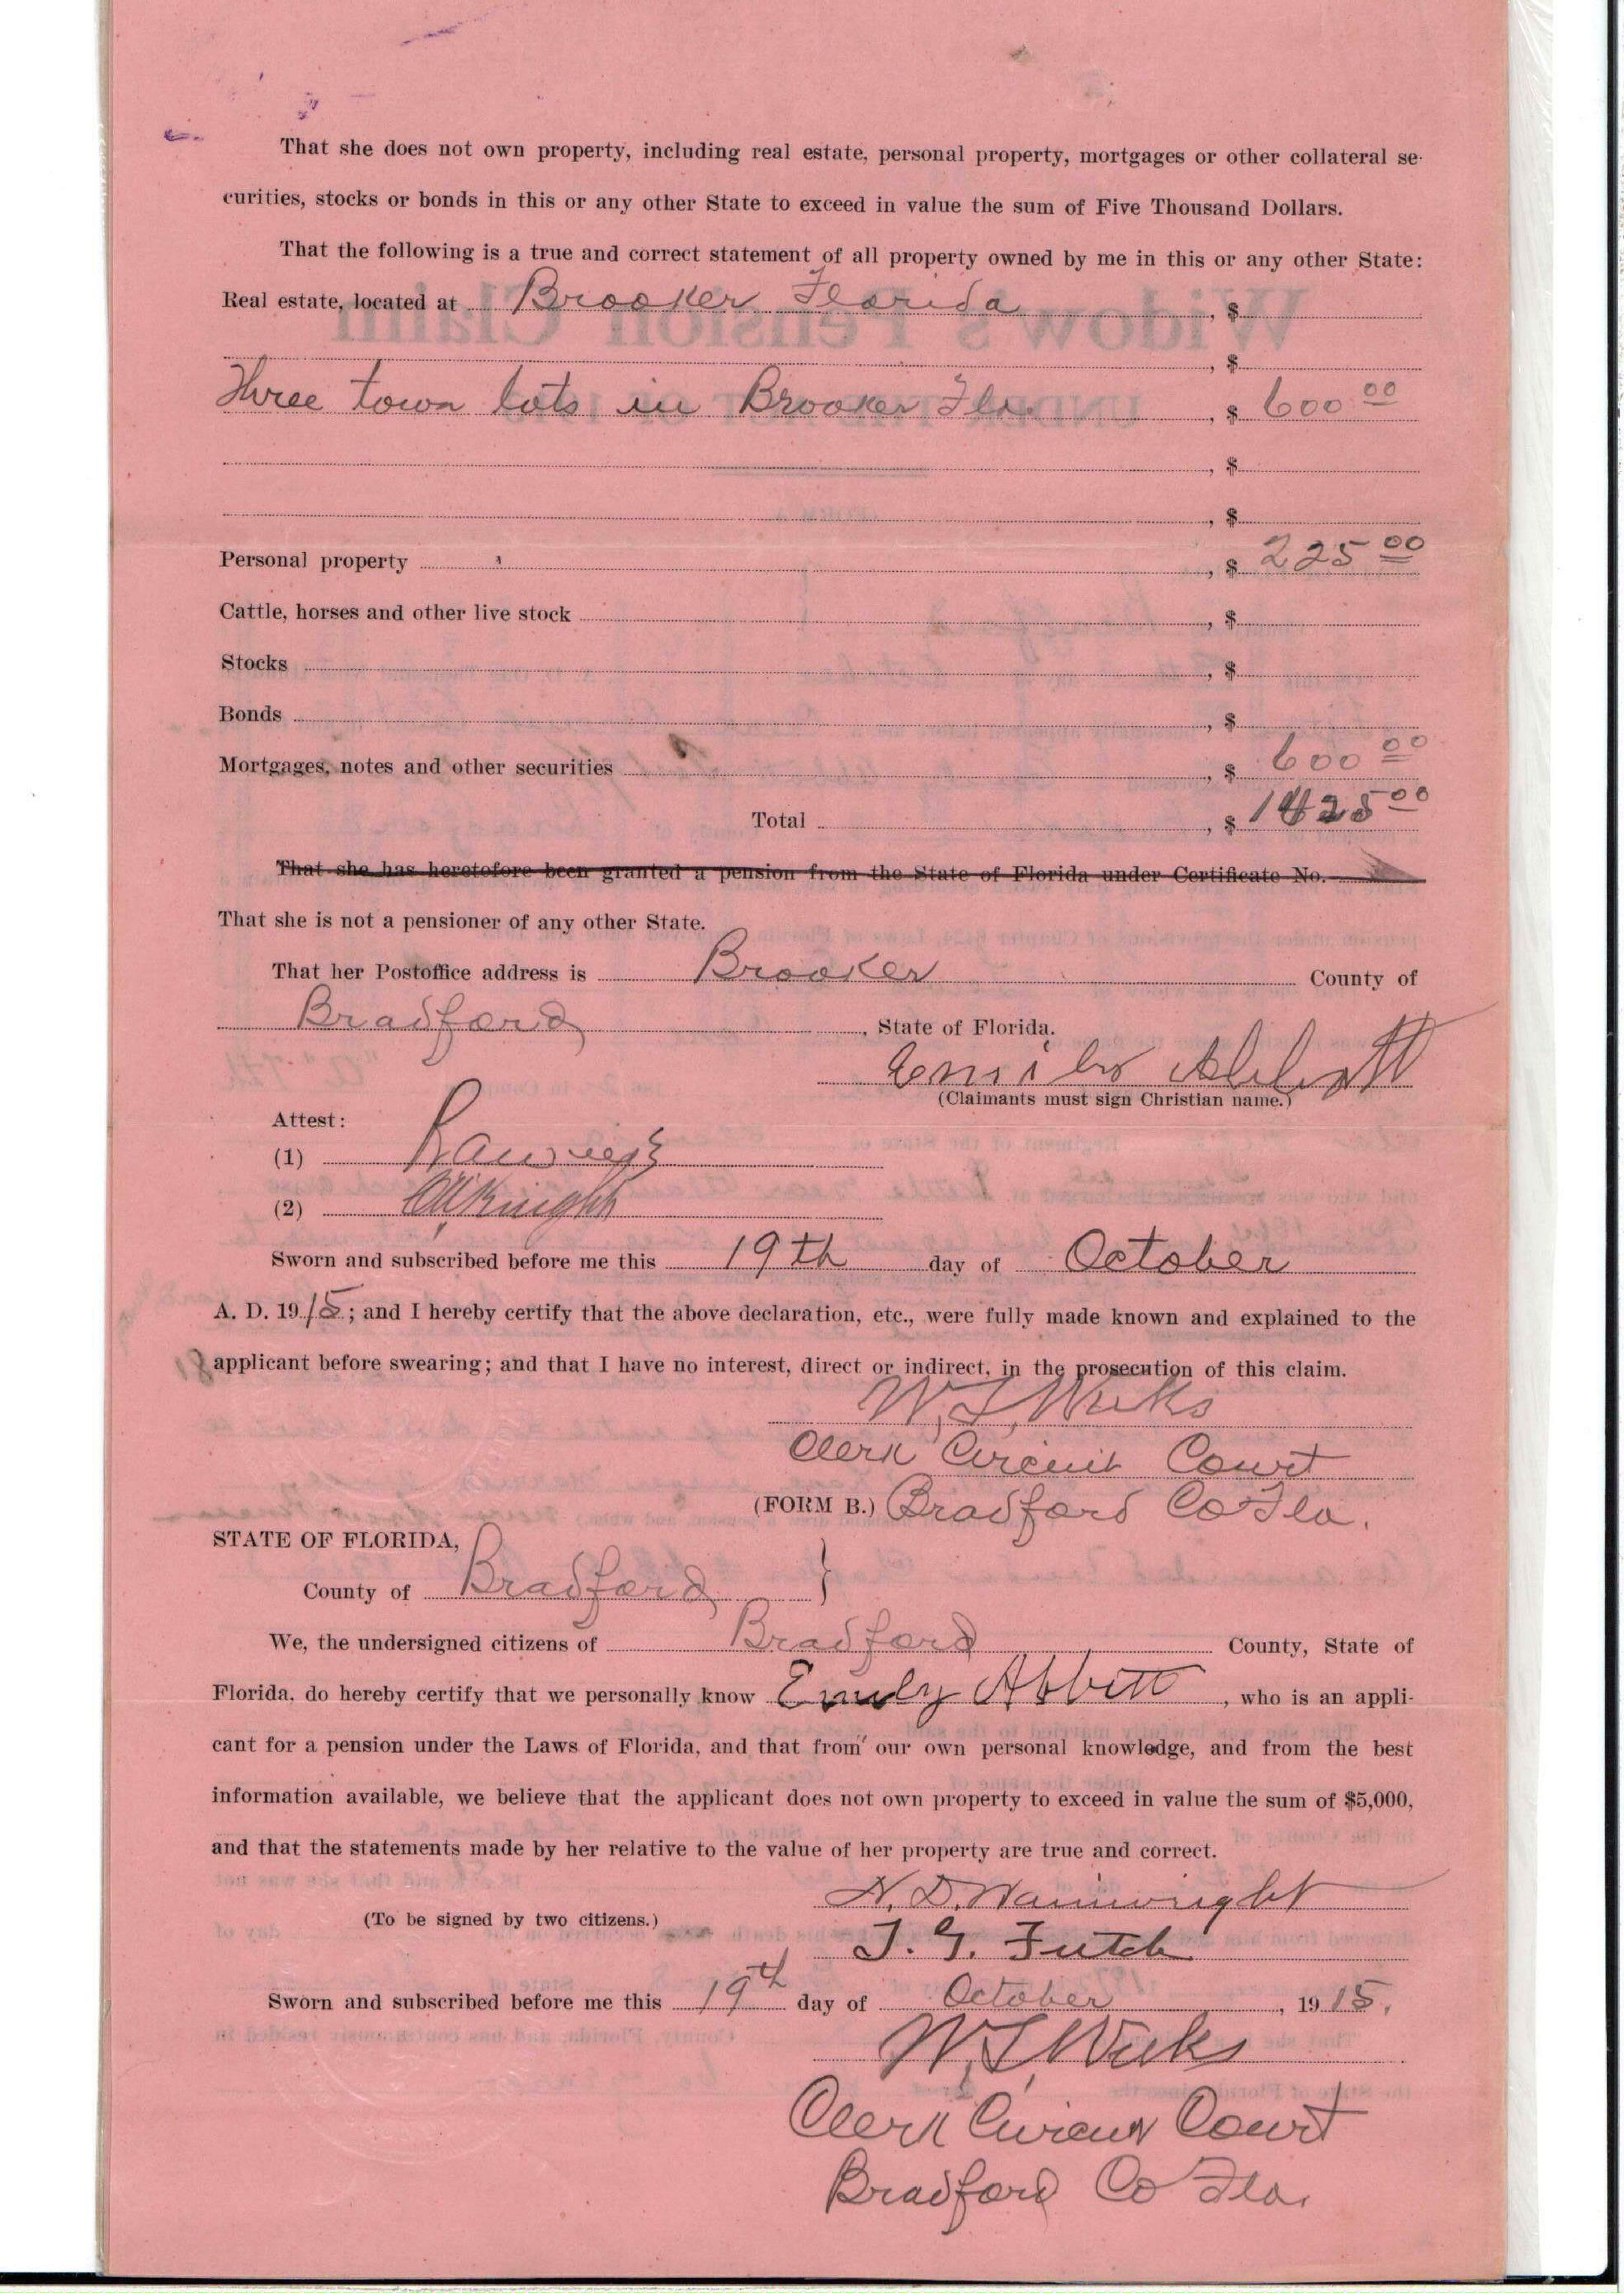 That she does not own property, including real estate, personal property, mortgages or other collateral se-
curities, stocks or bonds in this or any other State to exceed in value the sum of Five Thousand Dollars.
That the following is a true and correct statement of all property owned by me in this or any other State:
Real estate, located at Brooker Florida , $
, $
Three town lots in Brooker Fla. , $ 600 00
, $
, $
Personal property , $ 225 00
Cattle, horses and other live stock , $
Stocks , $
Bonds , $
Mortgages, notes and other securities , $ 600 00
Total , $ 1425 00
That she has heretofore been granted a pension from the State of Florida under Certificate No.
That she is not a pensioner of any other State.
That her Postoffice address is Brooker County of
Bradford , State of Florida.
Emily Abbott
(Claimants must sign Christian name.)
Attest:
(1)
(2) Knight
Sworn and subscribed before me this 19th day of October
A. D. 1915; and I hereby certify that the above declaration, etc., were fully made known and explained to the
applicant before swearing; and that I have no interest, direct or indirect, in the prosecution of this claim.
W. L. Weeks
Clerk Circuit Court
(FORM B.) Bradford Co Fla.
STATE OF FLORIDA,
County of Bradford }
We, the undersigned citizens of Bradford County, State of
Florida, do hereby certify that we personally know Emily Abbott , who is an appli-
cant for a pension under the Laws of Florida, and that from our own personal knowledge, and from the best
information available, we believe that the applicant does not own property to exceed in value the sum of $5,000,
and that the statements made by her relative to the value of her property are true and correct.
N. D. Wainwright
(To be signed by two citizens.)
J. G. Futch
Sworn and subscribed before me this 19th day of October , 1915.
W. L. Weeks
Clerk Circuit Court
Bradford Co Fla.